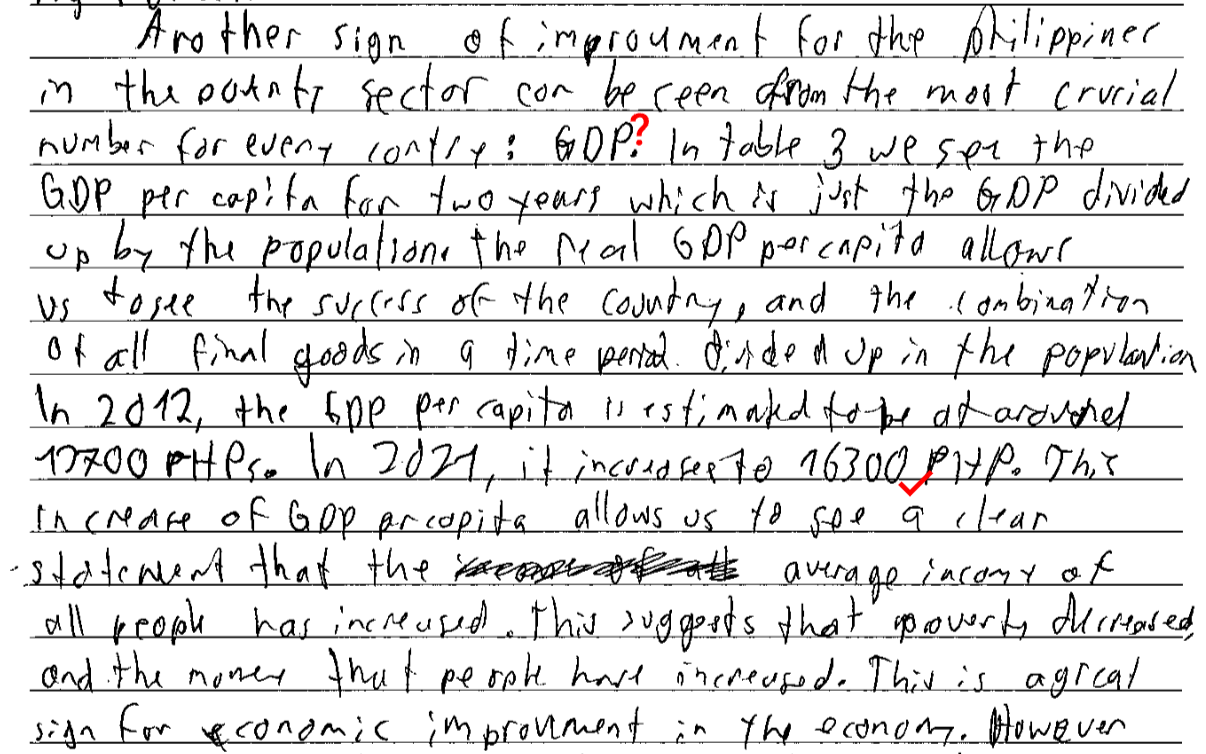 Another sign of improument for the philippines
in the sector can be seen from the most crucial
number for every contry: GDP? In table 3 we see the
GDP per capita for two years which is just the GDP divided
up by the population. the real GDP per capita allows
us to see the success of the country, and the combination
of all final goods in a time period. divided up in the population
In 2012, the GDP per capita is estimated to be at around
PHPs. In 2021, it increases to 16300 PHP. This
increase of GDP percapita allows us to see a clear
statement that the average income of
all people has increased. This suggests that poverty decreased,
and the money that people have increased. This is a great
sign for economic improvment in the economy. However